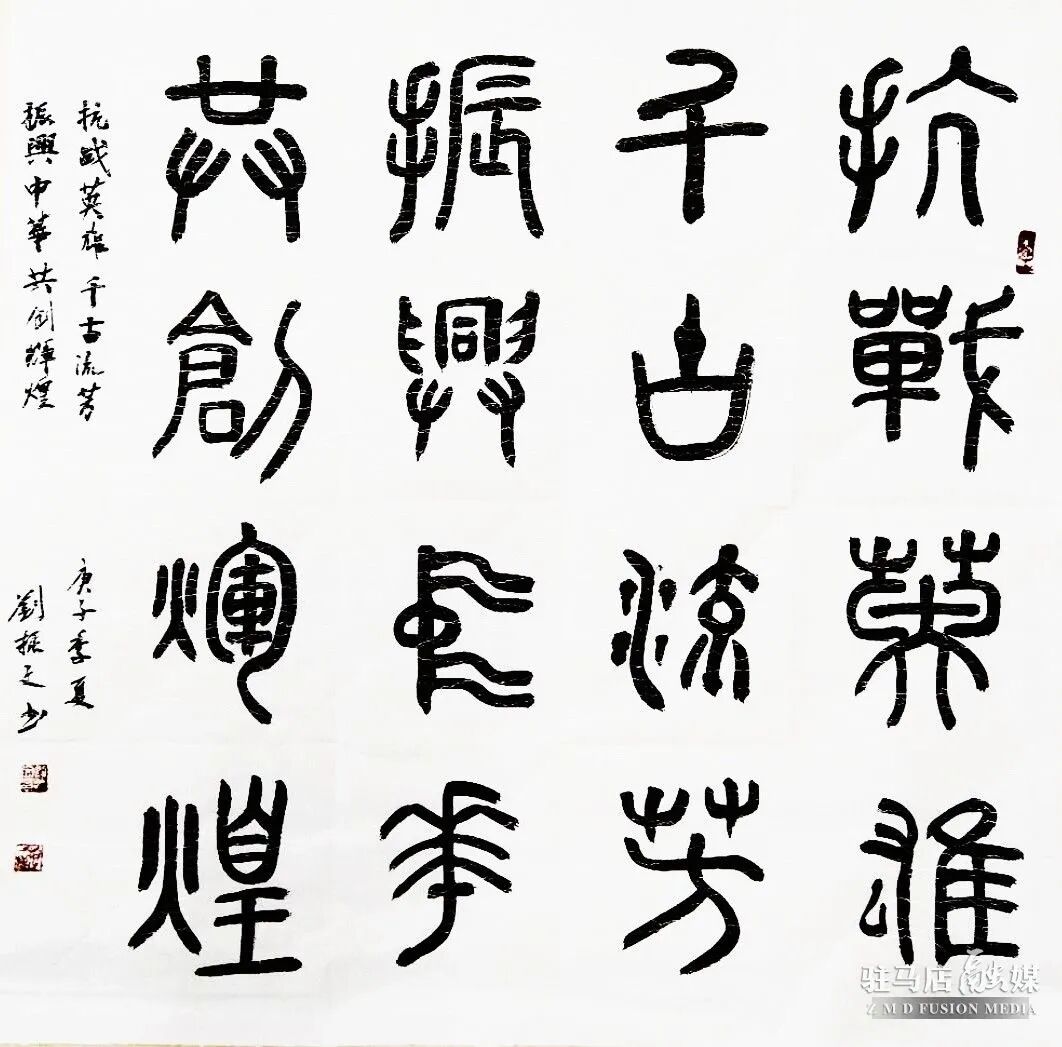 抗戰英雄
千古流芳
振興中華
共創輝煌
抗战英雄千古流芳
振興中華共创輝煌
庚子季夏
劉振文书
驻马店融媒
ZMD FUSION MEDIA